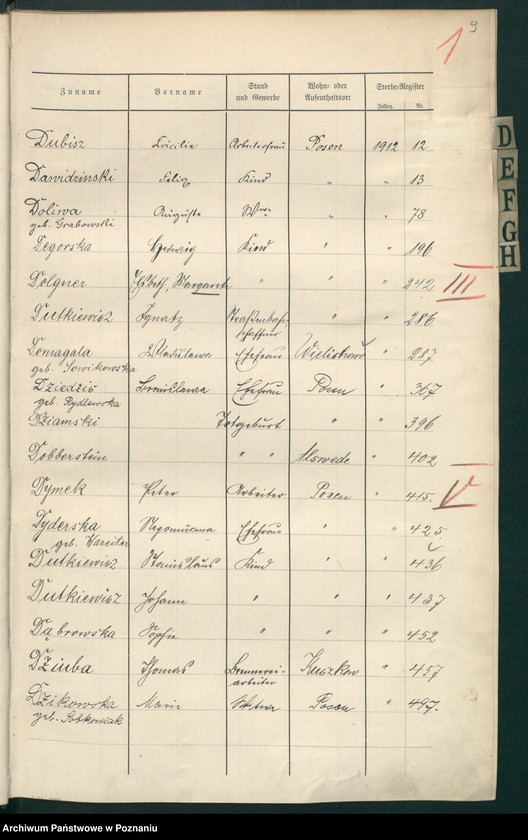 9
1
Zuname Vorname Stand und Gewerbe Wohn- oder Aufenthaltsort Sterbe-Register
Jahrg. Nr.
Dubisz Arbeiterfrau Posen 1912 12
Dawidzinski Kind " " 13
Doliwa Auguste Wwe " " 78
geb. Grabowski
Degorska Hedwig Kind " " 196
Dolgner Margarete " " " 242 III
Dutkiewicz Ignatz Straßenbahn- " " 286
schaffner
Domagala Wladislawa Ehefrau " 287
geb. Sowikowska
Dziedzic Bronislawa Ehefrau Posen " 367
geb. Rydlewska
Dziamski Totgeburt " " 396
Dobberstein " " Alswede " 402
Dymek Peter Arbeiter Posen " 415. V
Dyderska Nepomucena Ehefrau " " 425
Dutkiewicz Stanislaus Kind " " 436
Dutkiewicz Johann " " " 437
Dąbrowska Sophie " " " 452
Dziuba Thomas Brennerei- " 457
arbeiter
Dzikowska Marie Witwe Posen " 497.
geb. Sobkowiak
D
E
F
G
H
Archiwum Państwowe w Poznaniu